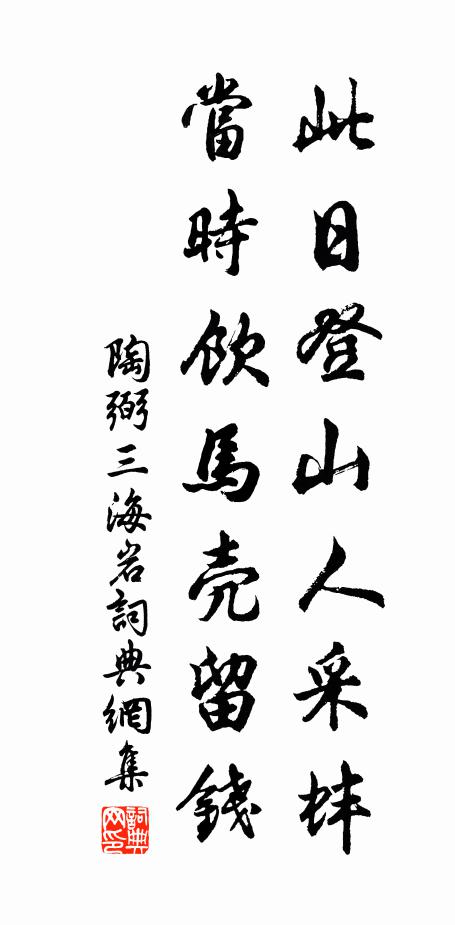 此日登山人采蚌
當時飲馬壳留錢
陶弼三海岩詞典網集
詞典网印